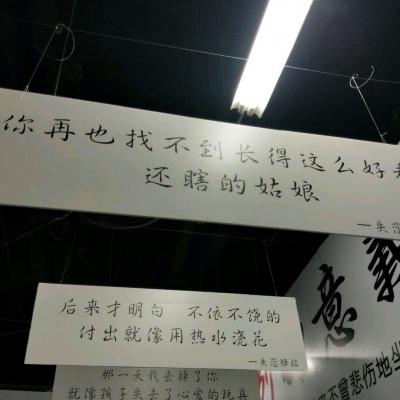 你再也找不到长得这么好看
还瞎的姑娘
一失恋
后来才明白 不依不饶的
付出就像用热水浇花
一失恋驿站
那一天我丢掉了你
就像孩子失去了心爱的玩具
意
不曾悲伤地坐